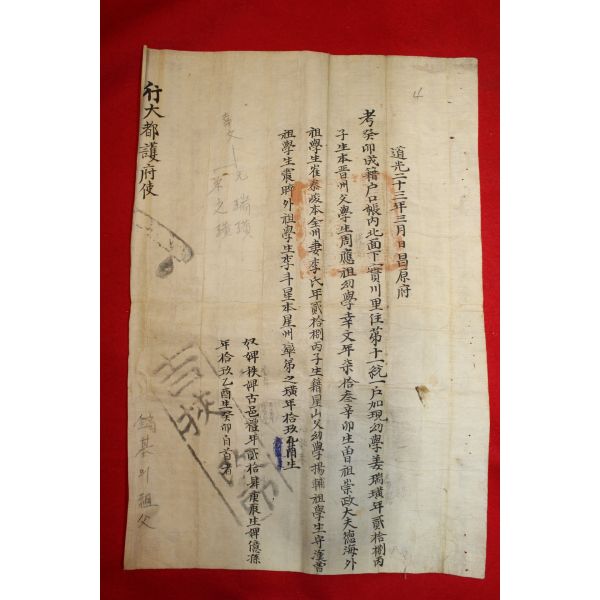 道光二十三年三月日昌原府
考癸卯成籍户口帳內北面下一實川里住第十一統一戸加現幼學姜瑞璜年貳拾捌丙
子生本晋州父學生周應祖幼學幸文年柒拾叁辛卯生曾祖崇政大夫德海外
祖學生崔泰峻本全州妻李氏年貳拾捌丙子生籍星山父幼學揚輔祖學生守漢曾
祖學生震聃外祖學生李斗星本星州率弟之璜年拾玖乙酉生
奴婢秩婢古邑禮年貳拾肆庚辰生婢億孫
年拾玖乙酉生癸卯自首者
行大都護府使
幸文 元 瑞璜
之璜
外祖父
4